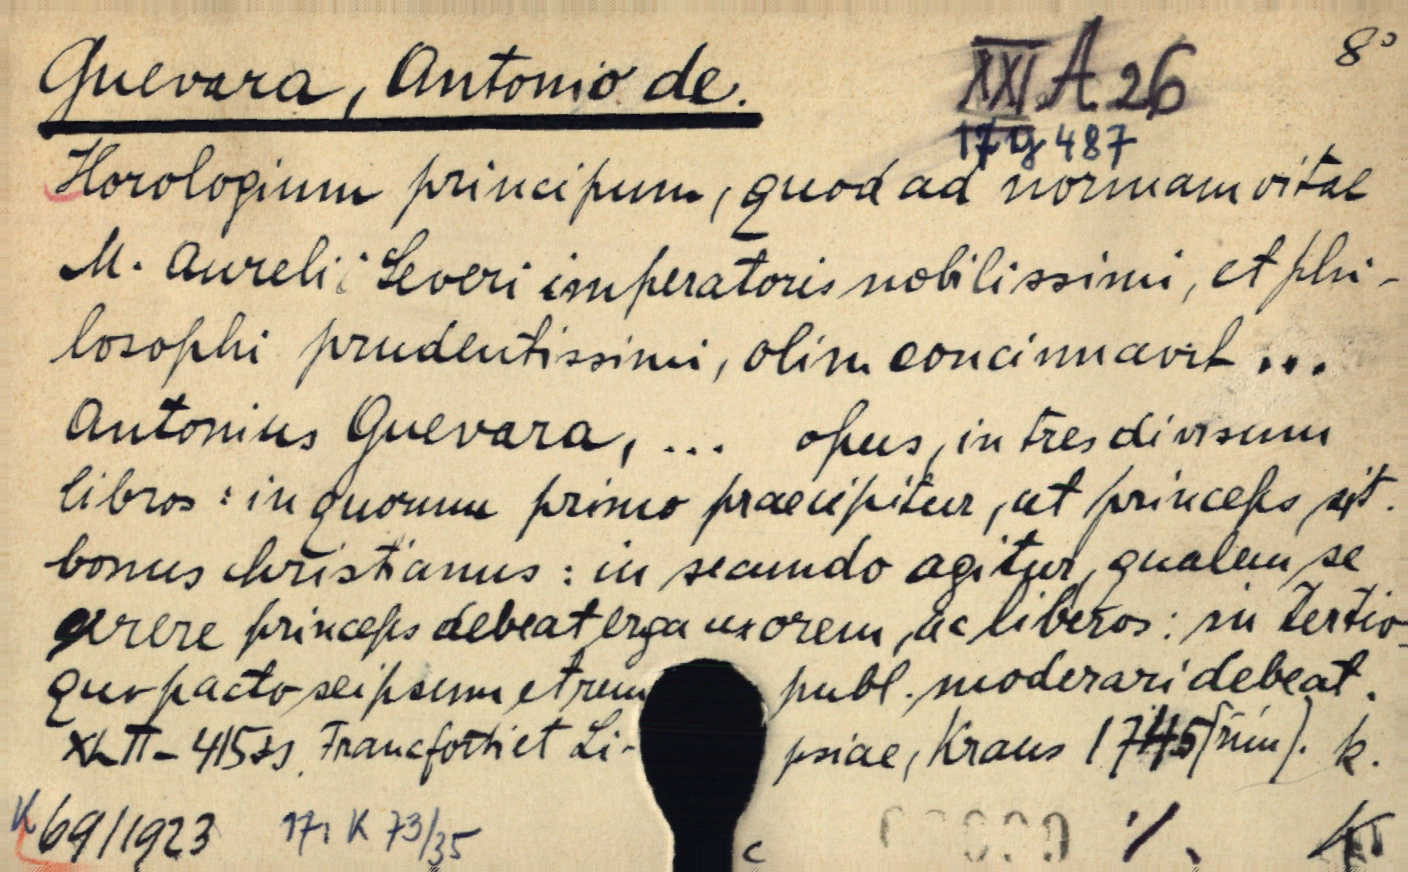 Guevara, Antonio de.
XXI A 26
8°
17 g 487
Horologium principum, quod ad normam vitae
M. Aurelii Severi imperatoris nobilissimi, et phi-
losophi prudentissimi, olim concinnavit ...
Antonius Guevara, ... opus, in tres divisum
libros: in quorum primo praecipitur, ut princeps sit
bonus christianus: in secundo agitur, qualem se
gerere princeps debeat erga uxorem, ac liberos: in tertio
quo pacto seipsum et rem publ. moderari debeat.
415 Francforti et Li- psiae, Kraus 1745 k.
K 69/1923
K 73/35
c